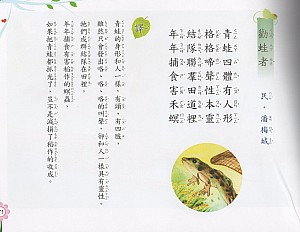 勸蛙者
民．潘梅城
青蛙四體有人形
格格啼聲性本靈
結隊聯羣田道裡
年年捕食害禾螟
譯
青蛙的身形和人一樣，有頭，有四肢，
雖然只會發出咯、咯、咯的叫聲，卻和人一樣具有靈性。
牠們成群結隊在田裡，
年年捕食有害稻作的螟蟲。
如果把青蛙都抓光了，豈不是減損了稻作的收成。